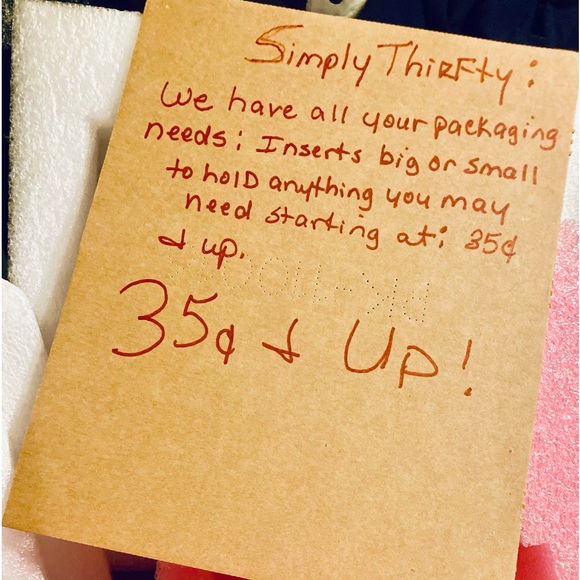 Simply ThiRFty:
We have all your packaging
needs: Inserts big or small
to hold anything you may
need starting at: 35¢
& up.
35¢ & Up!